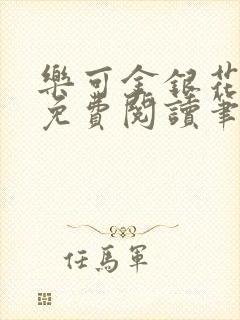 樂可金銀花
免費閱讀筆
任馬軍